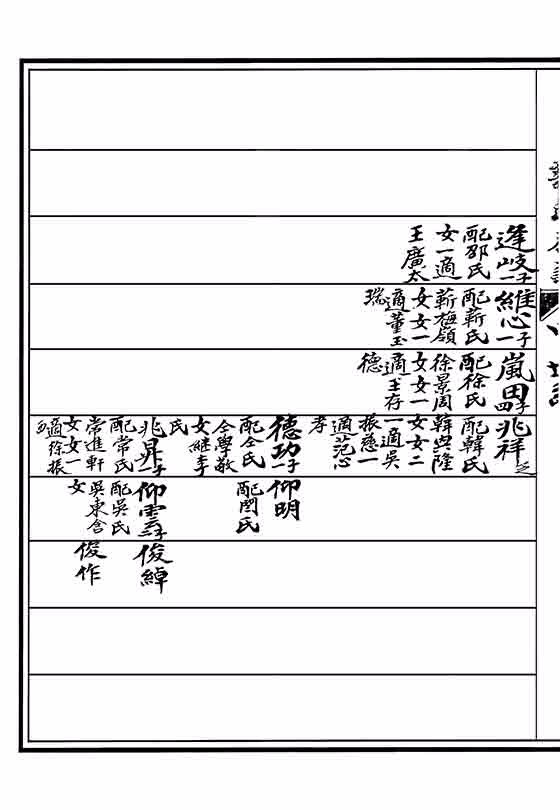 逢岐一子
配邵氏
女一適
王廣太
維心一子
配靳氏
靳梅嶺
女女一
適董玉
瑞
嵐田四子
配徐氏
徐景周
女女一
適王存
德
兆祥之
配韓氏
韓興隆
女女二
一適吳
振慈一
適范心
孝
德功一子
配仝氏
仝學敬
女繼李
氏
兆昇一子
配常氏
常進軒
女女一
適徐振
仰明
配閆氏
仰雲二子
配吳氏
吳東含
女
俊綽
俊作